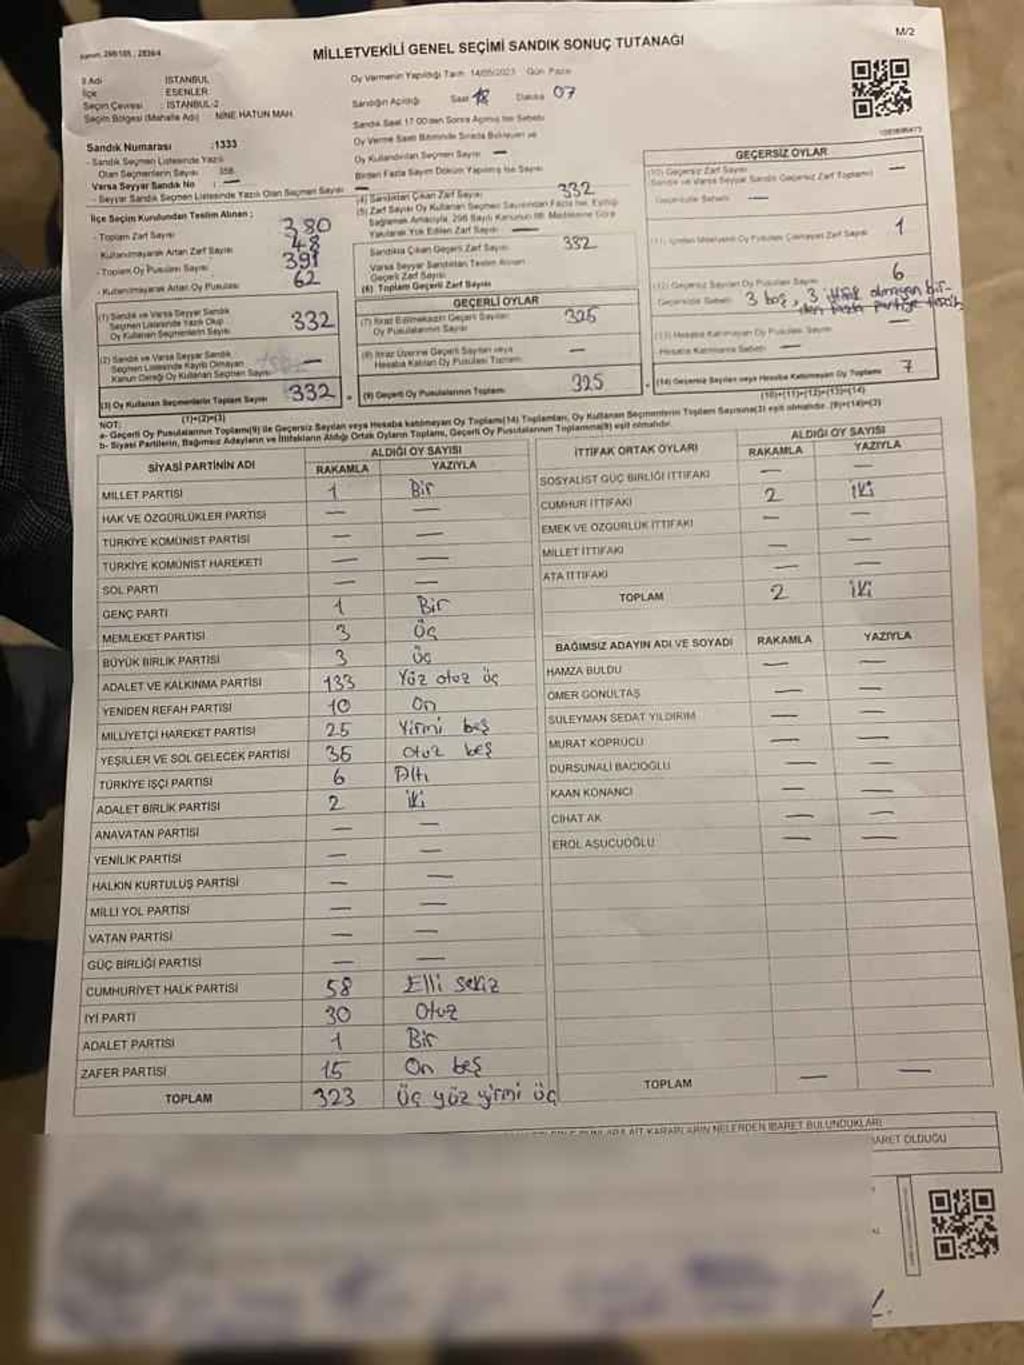 M/2
MİLLETVEKİLİ GENEL SEÇİMİ SANDIK SONUÇ TUTANAĞI
İl Adı : İSTANBUL
İlçe : ESENLER
Seçim Çevresi : İSTANBUL-2
Seçim Bölgesi (Mahalle Adı) : NİNE HATUN MAH.
Oy Vermenin Yapıldığı Tarih 14/05/2023 Gün Pazar
Sandığın Açıldığı Saat 18 Dakika 07
Sandık Saat 17.00'den Sonra Açılmış İse Sebebi
Oy Verme Saati Bitiminde Sırada Bekleyen ve
Oy Kullandırılan Seçmen Sayısı —
Birden Fazla Sayım Döküm Yapılmış İse Sayısı
Sandık Numarası :1333
- Sandık Seçmen Listesinde Yazılı
Olan Seçmenlerin Sayısı : 358
Varsa Seyyar Sandık No : —
- Seyyar Sandık Seçmen Listesinde Yazılı Olan Seçmen Sayısı —
İlçe Seçim Kurulundan Teslim Alınan :
- Toplam Zarf Sayısı 380
Kullanılmayarak Artan Zarf Sayısı 48
- Toplam Oy Pusulası Sayısı 391
- Kullanılmayarak Artan Oy Pusulası 62
(1) Sandık ve Varsa Seyyar Sandık
Seçmen Listesinde Yazılı Olup
Oy Kullanan Seçmenlerin Sayısı 332
(2) Sandık ve Varsa Seyyar Sandık
Seçmen Listesinde Kaydı Olmayan
Kanun Gereği Oy Kullanan Seçmen Sayısı —
(3) Oy Kullanan Seçmenlerin Toplam Sayısı 332
(1)+(2)=(3)
(4) Sandıktan Çıkan Zarf Sayısı 332
(5) Zarf Sayısı Oy Kullanan Seçmen Sayısından Fazla İse, Eşitliği
Sağlamak Amacıyla, 298 Sayılı Kanunun 98. Maddesine Göre
Yakılarak Yok Edilen Zarf Sayısı —
Sandıkta Çıkan Geçerli Zarf Sayısı 332
Varsa Seyyar Sandıktan Teslim Alınan
Geçerli Zarf Sayısı
(6) Toplam Geçerli Zarf Sayısı
GEÇERLİ OYLAR
(7) İtiraz Edilmeksizin Geçerli Sayılan
Oy Pusulalarının Sayısı 325
(8) İtiraz Üzerine Geçerli Sayılan veya
Hesaba Katılan Oy Pusulası Toplamı —
(9) Geçerli Oy Pusulalarının Toplamı 325
GEÇERSİZ OYLAR
(10) Geçersiz Zarf Sayısı
(Sandık ve Varsa Seyyar Sandık Geçersiz Zarf Toplamı) —
Geçersizlik Sebebi —
(11) İçinden Milletvekili Oy Pusulası Çıkmayan Zarf Sayısı 1
(12) Geçersiz Sayılan Oy Pusulası Sayısı 6
Geçersizlik Sebebi 3 boş, 3 ittifak olmayan bir-
den fazla partiye tercih
(13) Hesaba Katılmayan Oy Pusulası Sayısı —
Hesaba Katılmama Sebebi —
(14) Geçersiz Sayılan veya Hesaba Katılmayan Oy Toplamı 7
(10)+(11)+(12)+(13)=(14)
NOT:
a- Geçerli Oy Pusulalarının Toplamı(9) ile Geçersiz Sayılan veya Hesaba katılmayan Oy Toplamı(14) Toplamları, Oy Kullanan Seçmenlerin Toplam Sayısına(3) eşit olmalıdır. (9)+(14)=(3)
b- Siyasi Partilerin, Bağımsız Adayların ve İttifakların Aldığı Ortak Oyların Toplamı, Geçerli Oy Pusulalarının Toplamına(9) eşit olmalıdır.
SİYASİ PARTİNİN ADI ALDIĞI OY SAYISI
RAKAMLA YAZIYLA
MİLLET PARTİSİ 1 Bir
HAK VE ÖZGÜRLÜKLER PARTİSİ — —
TÜRKİYE KOMÜNİST PARTİSİ — —
TÜRKİYE KOMÜNİST HAREKETİ — —
SOL PARTİ — —
GENÇ PARTİ 1 Bir
MEMLEKET PARTİSİ 3 Üç
BÜYÜK BİRLİK PARTİSİ 3 Üç
ADALET VE KALKINMA PARTİSİ 133 Yüz otuz üç
YENİDEN REFAH PARTİSİ 10 On
MİLLİYETÇİ HAREKET PARTİSİ 25 Yirmi beş
YEŞİLLER VE SOL GELECEK PARTİSİ 35 Otuz beş
TÜRKİYE İŞÇİ PARTİSİ 6 Altı
ADALET BİRLİK PARTİSİ 2 iki
ANAVATAN PARTİSİ — —
YENİLİK PARTİSİ — —
HALKIN KURTULUŞ PARTİSİ — —
MİLLİ YOL PARTİSİ — —
VATAN PARTİSİ — —
GÜÇ BİRLİĞİ PARTİSİ — —
CUMHURİYET HALK PARTİSİ 58 Elli sekiz
İYİ PARTİ 30 Otuz
ADALET PARTİSİ 1 Bir
ZAFER PARTİSİ 15 On beş
TOPLAM 323 Üç yüz yirmi üç
İTTİFAK ORTAK OYLARI ALDIĞI OY SAYISI
RAKAMLA YAZIYLA
SOSYALİST GÜÇ BİRLİĞİ İTTİFAKI — —
CUMHUR İTTİFAKI 2 iki
EMEK VE ÖZGÜRLÜK İTTİFAKI — —
MİLLET İTTİFAKI — —
ATA İTTİFAKI — —
TOPLAM 2 iki
BAĞIMSIZ ADAYIN ADI VE SOYADI RAKAMLA YAZIYLA
HAMZA BULDU — —
ÖMER GÖNÜLTAŞ — —
SÜLEYMAN SEDAT YILDIRIM — —
MURAT KÖPRÜCÜ — —
DURSUNALİ BACIOĞLU — —
KAAN KONANCI — —
CİHAT AK — —
EROL AŞUCUOĞLU — —
TOPLAM — —
NELERDEN İBARET BULUNDUKLARI
BARET OLDUĞU